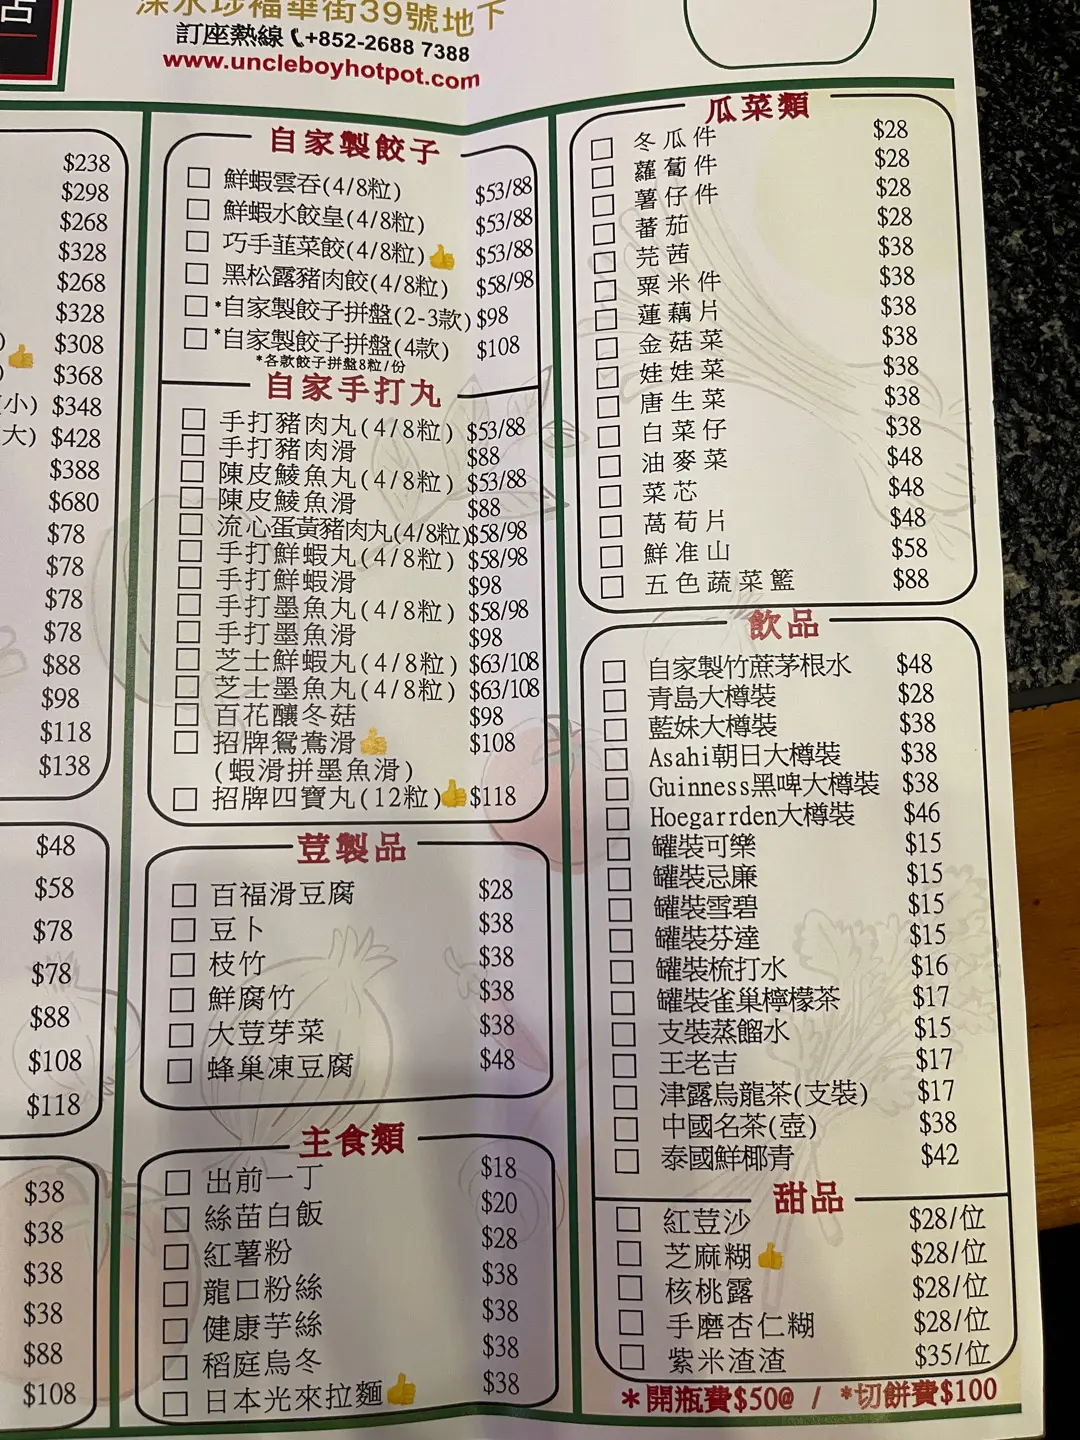 深水埗福華街39號地下
訂座熱線 +852-2688 7388
www.uncleboyhotpot.com
$238
$298
$268
$328
$268
$328
$308
$368
小) $348
大) $428
$388
$680
$78
$78
$78
$78
$88
$98
$118
$138
$48
$58
$78
$78
$88
$108
$118
$38
$38
$38
$38
$88
$108
自家製餃子
鮮蝦雲吞(4/8粒) $53/88
鮮蝦水餃皇(4/8粒) $53/88
巧手韮菜餃(4/8粒) $53/88
黑松露豬肉餃(4/8粒) $58/98
*自家製餃子拼盤(2-3款) $98
*自家製餃子拼盤(4款) $108
*各款餃子拼盤8粒/份
自家手打丸
手打豬肉丸(4/8粒) $53/88
手打豬肉滑 $88
陳皮鯪魚丸(4/8粒) $53/88
陳皮鯪魚滑 $88
流心蛋黃豬肉丸(4/8粒) $58/98
手打鮮蝦丸(4/8粒) $58/98
手打鮮蝦滑 $98
手打墨魚丸(4/8粒) $58/98
手打墨魚滑 $98
芝士鮮蝦丸(4/8粒) $63/108
芝士墨魚丸(4/8粒) $63/108
百花釀冬菇 $98
招牌鴛鴦滑 $108
(蝦滑拼墨魚滑)
招牌四寶丸(12粒) $118
荳製品
百福滑豆腐 $28
豆卜 $38
枝竹 $38
鮮腐竹 $38
大荳芽菜 $38
蜂巢凍豆腐 $48
主食類
出前一丁 $18
絲苗白飯 $20
紅薯粉 $28
龍口粉絲 $38
健康芋絲 $38
稻庭烏冬 $38
日本光來拉麵 $38
瓜菜類
冬瓜件 $28
蘿蔔件 $28
薯仔件 $28
蕃茄 $28
芫茜 $38
粟米件 $38
蓮藕片 $38
金菇菜 $38
娃娃菜 $38
唐生菜 $38
白菜仔 $38
油麥菜 $48
菜芯 $48
萵荀片 $48
鮮准山 $58
五色蔬菜籃 $88
飲品
自家製竹蔗茅根水 $48
青島大樽裝 $28
藍妹大樽裝 $38
Asahi朝日大樽裝 $38
Guinness黑啤大樽裝 $38
Hoegarrden大樽裝 $46
罐裝可樂 $15
罐裝忌廉 $15
罐裝雪碧 $15
罐裝芬達 $15
罐裝梳打水 $16
罐裝雀巢檸檬茶 $17
支裝蒸餾水 $15
王老吉 $17
津露烏龍茶(支裝) $17
中國名茶(壺) $38
泰國鮮椰青 $42
甜品
紅荳沙 $28/位
芝麻糊 $28/位
核桃露 $28/位
手磨杏仁糊 $28/位
紫米渣渣 $35/位
*開瓶費$50@ / *切餅費$100